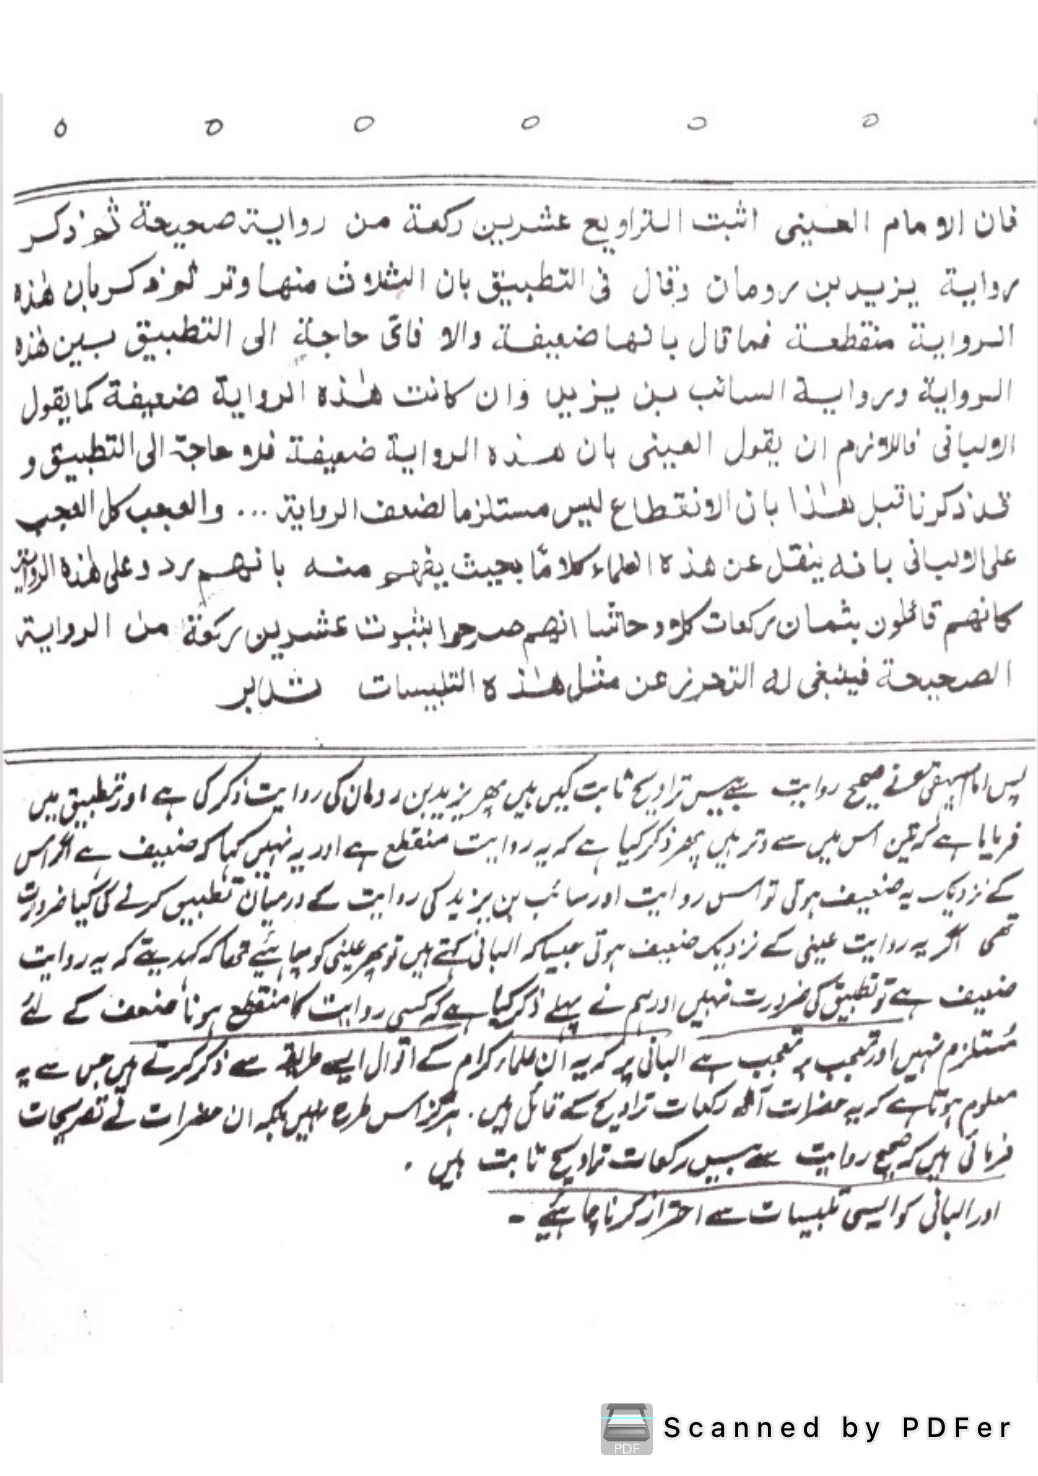 فان الامام العينى اثبت التراويح عشرين ركعة من رواية صحيحة ثم ذكر
رواية يزيد بن رومان وقال فى التطبيق بان الثلاث منها وتر ثم ذكر بان هذه
الرواية منقطعة فما قال بانها ضعيفة والا فاى حاجة الى التطبيق بين هذه
الرواية ورواية السائب بن يزيد وان كانت هذه الرواية ضعيفة كما يقول
الالبانى فاللازم ان يقول العينى بان هذه الرواية ضعيفة فلا حاجة الى التطبيق و
قد ذكرنا قبل هذا بان الانقطاع ليس مستلزما لضعف الرواية ... والعجب كل العجب
على الالبانى بانه ينقل عن هذه العلماء كلامًا بحيث يفهم منه بانهم ردوا على هذه الرواية
كانهم قائلون بثمان ركعات كلا وحاشا انهم صرحوا بثبوت عشرين ركعة من الرواية
الصحيحة فينبغى له التحرز عن مثل هذه التلبيسات تدبر
پس امام بیہقی نے صحیح روایت سے بیس تراویح ثابت کیں ہیں پھر یزید بن رومان کی روایت ذکر کی ہے اور تطبیق میں
فرمایا ہے کہ تین اس میں سے وتر ہیں پھر ذکر کیا ہے کہ یہ روایت منقطع ہے اور یہ نہیں کہا کہ ضعیف ہے اگر اس
کے نزدیک یہ ضعیف ہوتی تو اس روایت اور سائب بن یزید کی روایت کے درمیان تطبیق کرنے کی کیا ضرورت
تھی اگر یہ روایت عینی کے نزدیک ضعیف ہوتی جیسا کہ البانی کہتے ہیں تو پھر عینی کو چاہئیے تھا کہ کہدیتے کہ یہ روایت
ضعیف ہے تو تطبیق کی ضرورت نہیں اور ہم نے پہلے ذکر کیا ہے کہ کسی روایت کا منقطع ہونا ضعف کے لئے
مُستلزم نہیں اور تعجب بر تعجب ہے البانی پر کہ یہ ان علماء کرام کے اقوال ایسے طریقہ سے ذکر کرتے ہیں جس سے یہ
معلوم ہوتا ہے کہ یہ حضرات آٹھ رکعات تراویح کے قائل ہیں. ہرگز اس طرح نہیں بلکہ ان حضرات نے تصریحات
فرمائی ہیں کہ صحیح روایت سے بیس رکعات تراویح ثابت ہیں .
اور البانی کو ایسی تلبیسات سے احتراز کرنا چاہئیے -
Scanned by PDFer
PDF